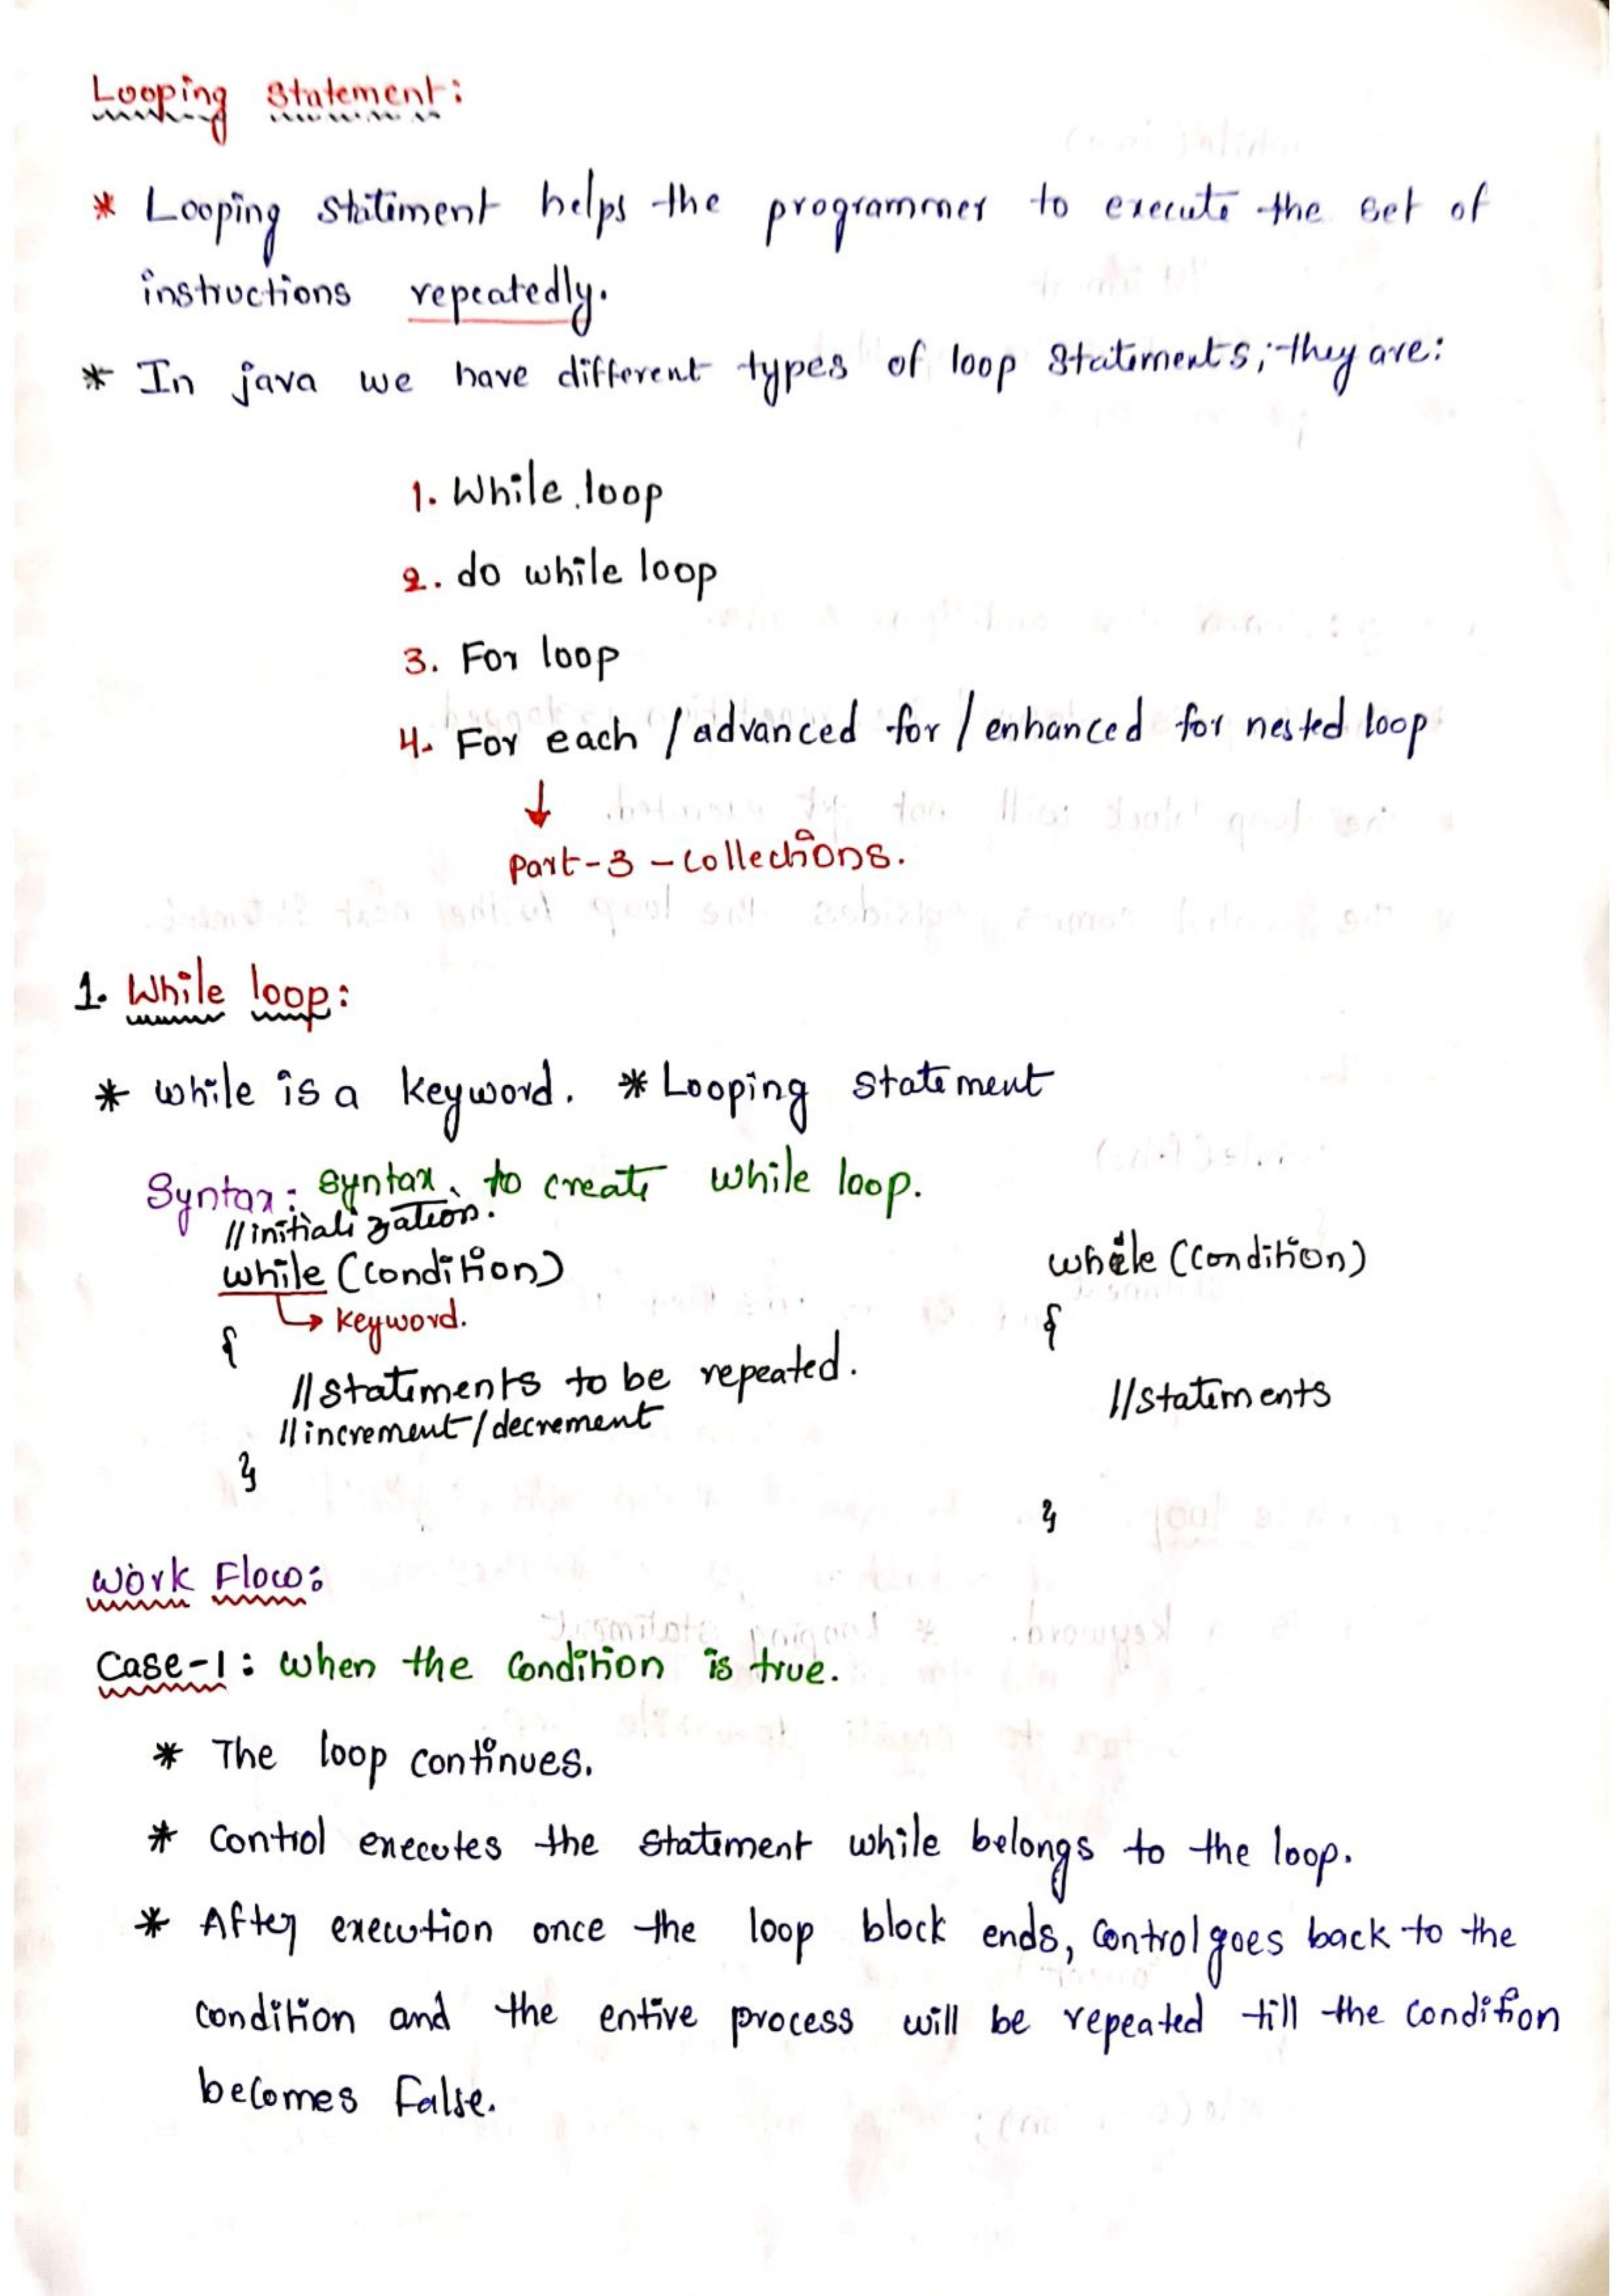 Looping Statement:
* Looping statement helps the programmer to execute the set of
instructions repeatedly.
* In java we have different types of loop statements; they are:
1. While loop
2. do while loop
3. For loop
4. For each / advanced for / enhanced for nested loop
↓
Part-3 - Collections.
1. While loop:
* while is a keyword. * Looping statement
Syntax: Syntax to create while loop.
//initialization.
while (condition)
→ keyword.
{
//statements to be repeated.
//increment/decrement
}
while (condition)
{
//statements
}
Work Flow:
Case-1: when the condition is true.
* The loop continues.
* Control executes the statement while belongs to the loop.
* After execution once the loop block ends, control goes back to the
condition and the entire process will be repeated till the condition
becomes False.